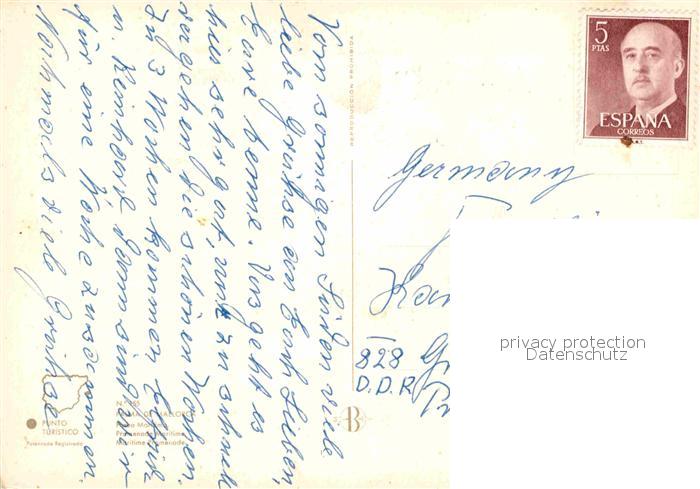 Vom sonnigen Süden viele
liebe Grüße an Euch Lieben,
Eure Hanne. Uns geht es
hier sehr gut, nur zu schnell
vergehen die schönen Wochen.
In 3 Wochen kommen
u. Reinhard dann sind wir
für eine Woche zusammen.
Nochmals viele Grüße
REPRODUCCIÓN PROHIBIDA
5
PTAS
ESPAÑA
CORREOS
Germany
828
D.D.R.
privacy protection
Datenschutz
PUNTO
TURÍSTICO
Patentado Registrado
PALMA DE MALLORCA
Paseo Marítimo
Promenade Maritime
Maritime Promenade
B